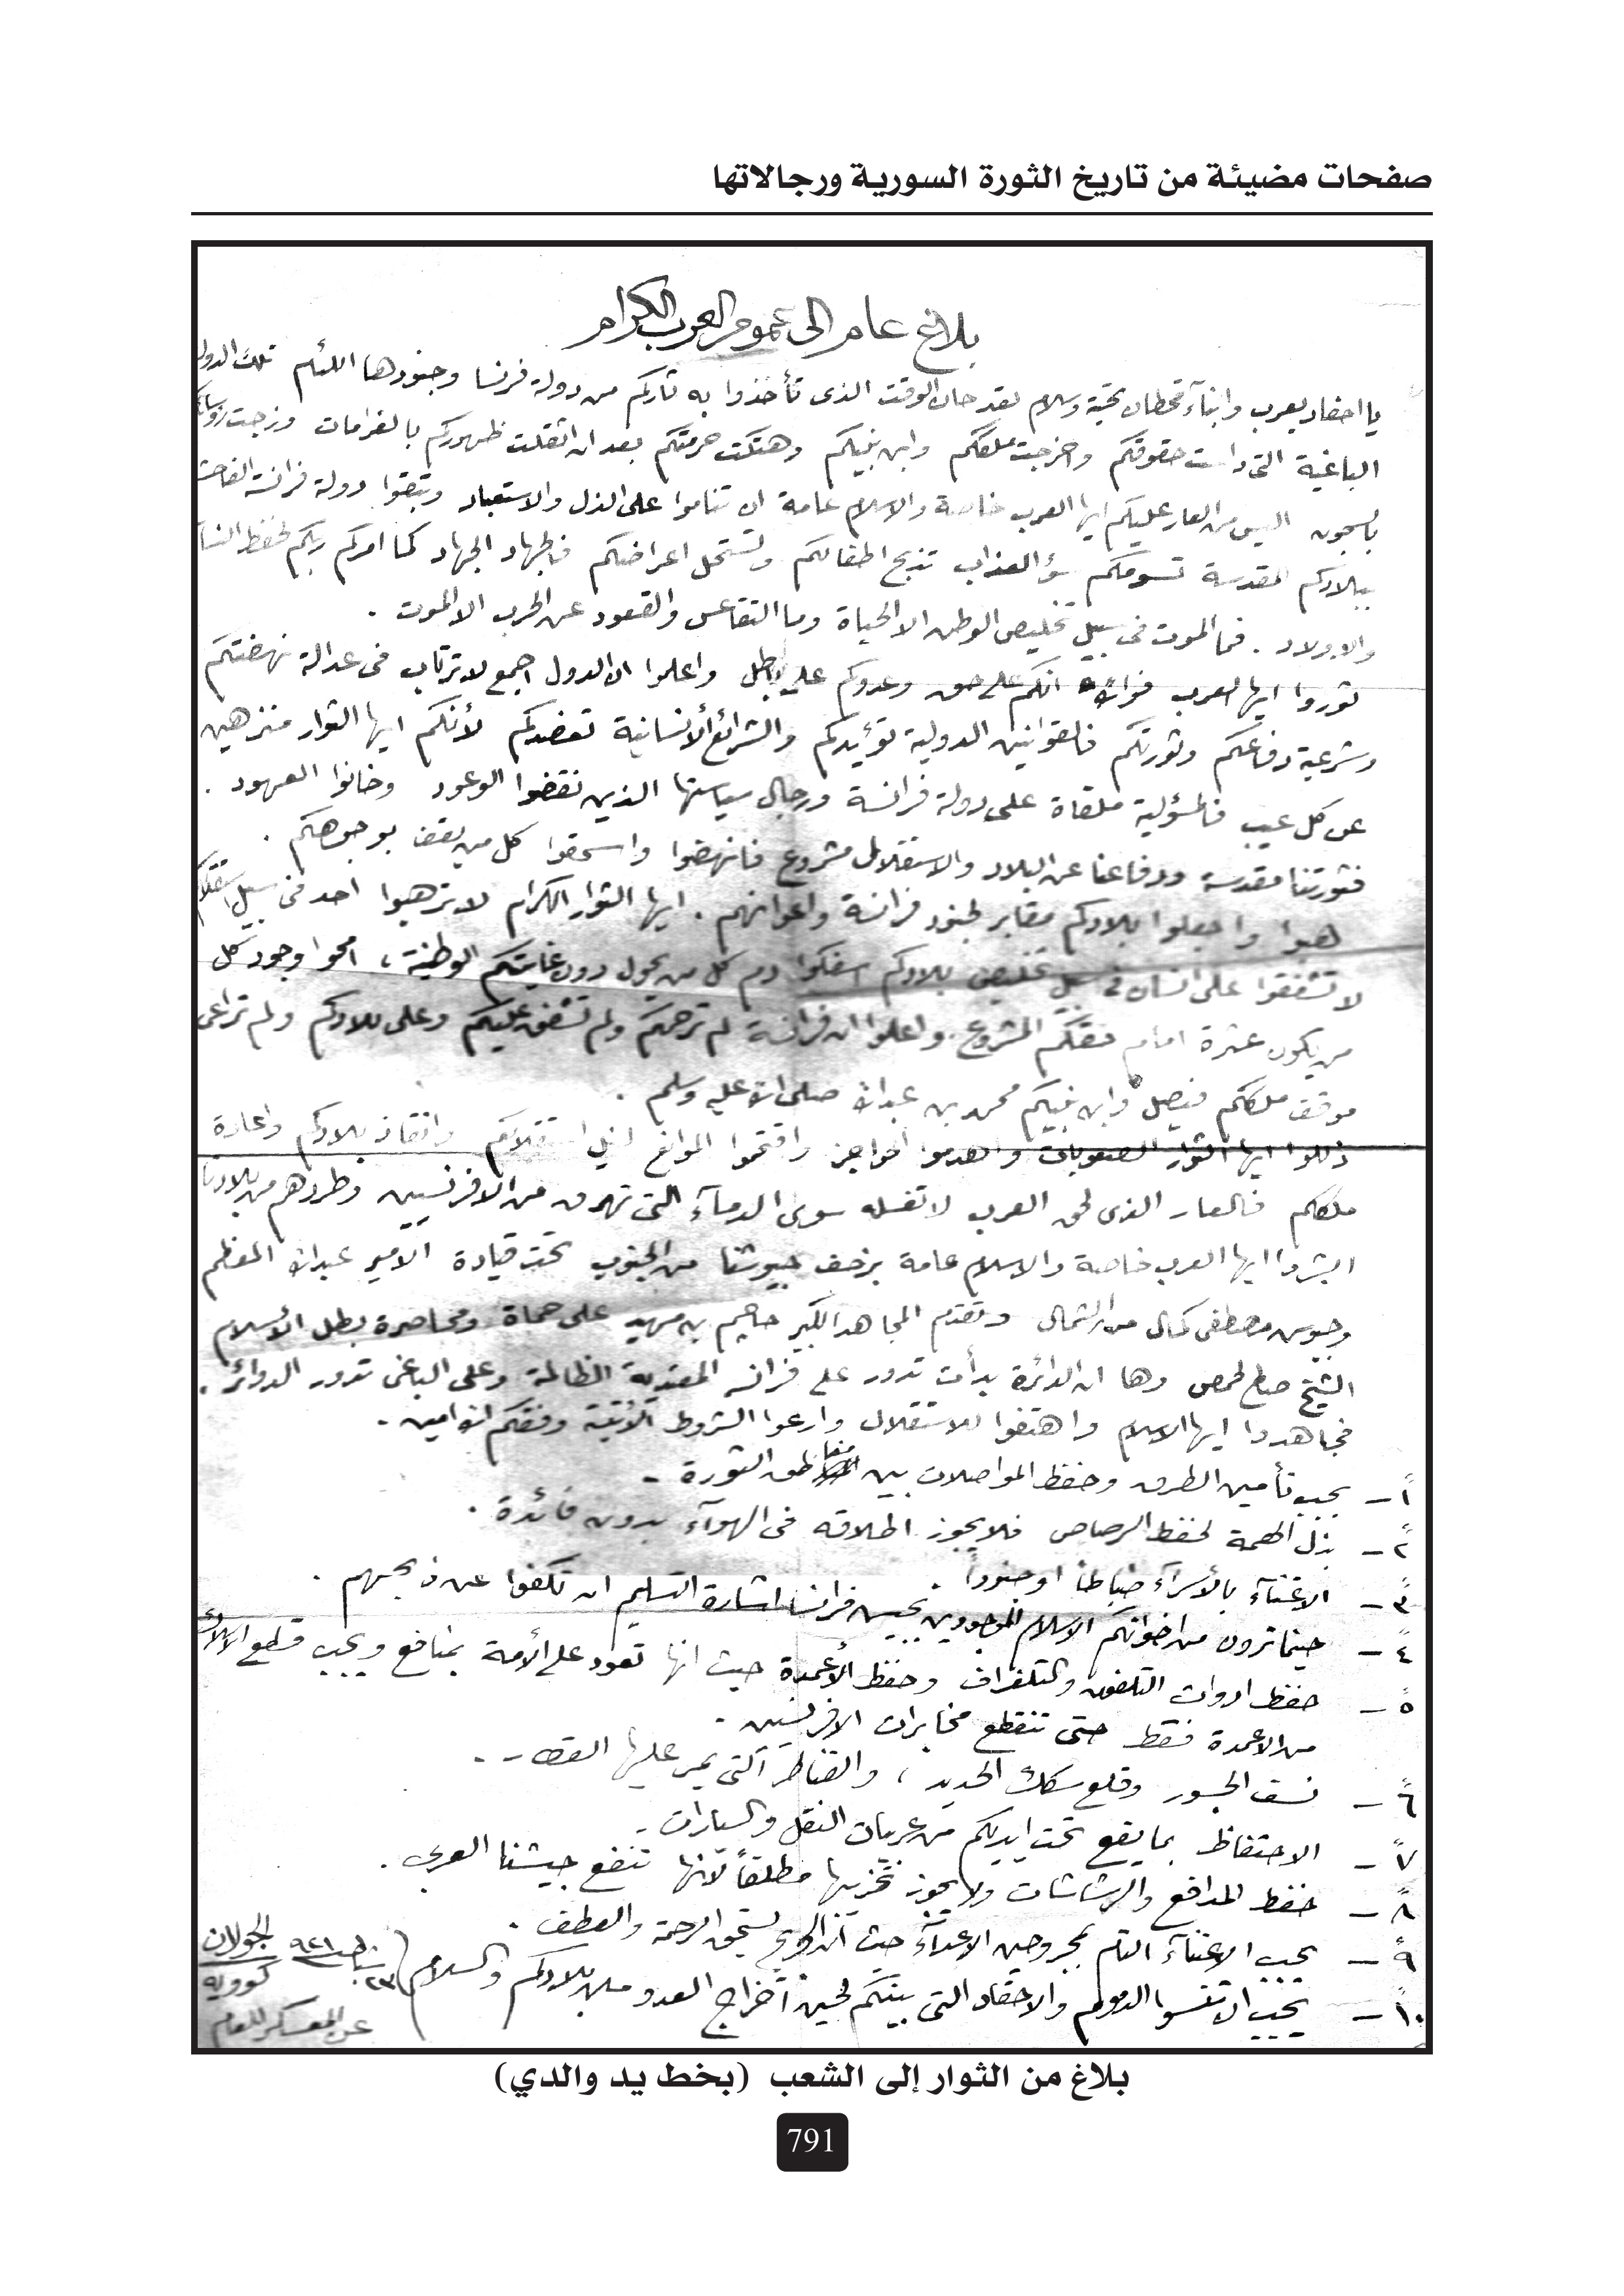 صفحات مضيئة من تاريخ الثورة السورية ورجالاتها
بلاغ عام الى عموم العرب الكرام
يا احفاد يعرب وابنآء قحطان تحية وسلام لقد حان الوقت الذى تأخذوا به ثاركم من دولة فرنسا وجنودها اللئام تلك الدولة
الباغية التى داست حقوقكم واخرجت ملككم وابن نبيكم وهتكت حرمتكم بعد ان اثقلت ظهوركم بالغرامات وزجت
بالسجون اليس من العار عليكم ايها العرب خاصة والاسلام عامة ان تناموا على الذل والاستعباد وتبقوا دولة فرانسة
ببلادكم المقدسة تسومكم سؤ العذاب تذبح اطفالكم وتستحل اعراضكم فالجهاد الجهاد كما امركم ربكم لحفظ النسآ
والاولاد . فما الموت فى سبيل تخليص الوطن الا الحياة وما التقاعس والقعود عن الحرب الا الموت .
ثوروا ايها العرب فوالله انكم على حق وعدوكم على باطل واعلموا ان الدول اجمع لا ترتاب فى عدالة نهضتكم
وشرعية دفاعكم وثورتكم فالقوانين الدولية تؤيدكم والشرائع الأنسانية تعضدكم لأنكم ايها الثوار منزهين
عن كل عيب فالمسؤلية ملقاة على دولة فرانسة ورجال سياستها الذين نقضوا الوعود وخانوا العهود .
فثورتنا مقدسة ودفاعنا عن البلاد والاستقلال مشروع فانهضوا واسحقوا كل من يقف بوجوهكم .
هبوا واجعلوا بلادكم مقابر لجنود فرانسة واعوانهم . ايها الثوار الكرام لا ترهبوا احد فى سبيل استقلالكم
لا تشفقوا على انسان فى سبيل تخليص بلادكم اسفكوا دم كل من يحول دون غايتكم الوطنية ، امحوا وجود كل
من يكون عثرة امام حقكم المشروع . واعلموا ان فرانسة لم ترحمكم ولم تشفق عليكم وعلى بلادكم ولم تراعى
موقف ملككم فيصل وابن نبيكم محمد بن عبدالله صلى الله عليه وسلم .
ذللوا ايها الثوار الصعوبات واهدموا الحواجز واقتحموا الموانع لنيل استقلالكم وانقاذ بلادكم واعادة
ملككم فالعار الذى لحق العرب لا تغسله سوى الدمآء التى تهرق من الافرنسيين وطردهم من بلادنا
ابشروا ايها العرب خاصة والاسلام عامة بزحف جيوشنا من الجنوب تحت قيادة الأمير عبدالله المعظم
وجيوس مصطفى كمال من الشمال وتقدم المجاهد الكبير حاجم بن مهيد على حماة ومحاصرة بطل الأسلام
الشيخ صالح لحمص وها ان الدائرة بدأت تدور على فرانسه المعتدية الظالمة وعلى الباغى تدور الدوائر .
فجاهدوا ايها الاسلام واهتفوا للاستقلال وارعوا الشروط الأتية وفقكم الله امين .
١ً – يجب تأمين الطرق وحفظ المواصلات بين مناطق الثورة –
٢ً – بذل الهمة لحفظ الرصاص فلا يجوز اطلاقه فى الهوآء بدون فائدة .
٣ً – الاعتنآء بالأسرآء ضباطاً او جنوداً .
٤ً – حينما ترون من اخوانكم الاسلام الموجودين بجيس فرانسا اشارة التسليم ان تكفوا عن ذبحهم .
٥ً – حفظ ادوات التلفون والتلغراف وحفظ الأعمدة حيث انها تعود على الأمة بمنافع ويجب قطع الاسلاك
من الاعمدة فقط حتى تنقطع مخابرات الافرنسيين .
٦ً – نسف الجسور وقلع سكك الحديد ، والقناطر التى يمر عليها القطار .
٧ً – الاحتفاظ بما يقع تحت ايديكم من عربات النقل والسيارات .
٨ً – حفظ المدافع والرشاشات ولا يجوز تخريبها مطلقاً لأنها تنفع جيشنا العربى .
٩ً – يجب الاعتنآء التام بمجروحين الاعدآء حيث ان الجريح يستحق الرحمة والعطف .
١٠ً – يجب ان تنسوا الدموم والاحقاد التى بينكم لحين أخراج العدو من بلادكم والسلام
٢٣ شباط ٩٢١ الجولان
عن المعسكر العام
بلاغ من الثوار إلى الشعب (بخط يد والدي)
791